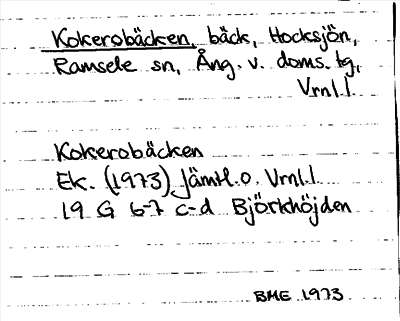 Kokerobäcken, bäck, Hocksjön,
Ramsele sn, Ång. v. doms. tg,
Vrnl.l.
Kokerobäcken
Ek. (1973) Jämtl.o. Vrnl.l.
19 G 6-7 c-d Björkhöjden
BME 1973